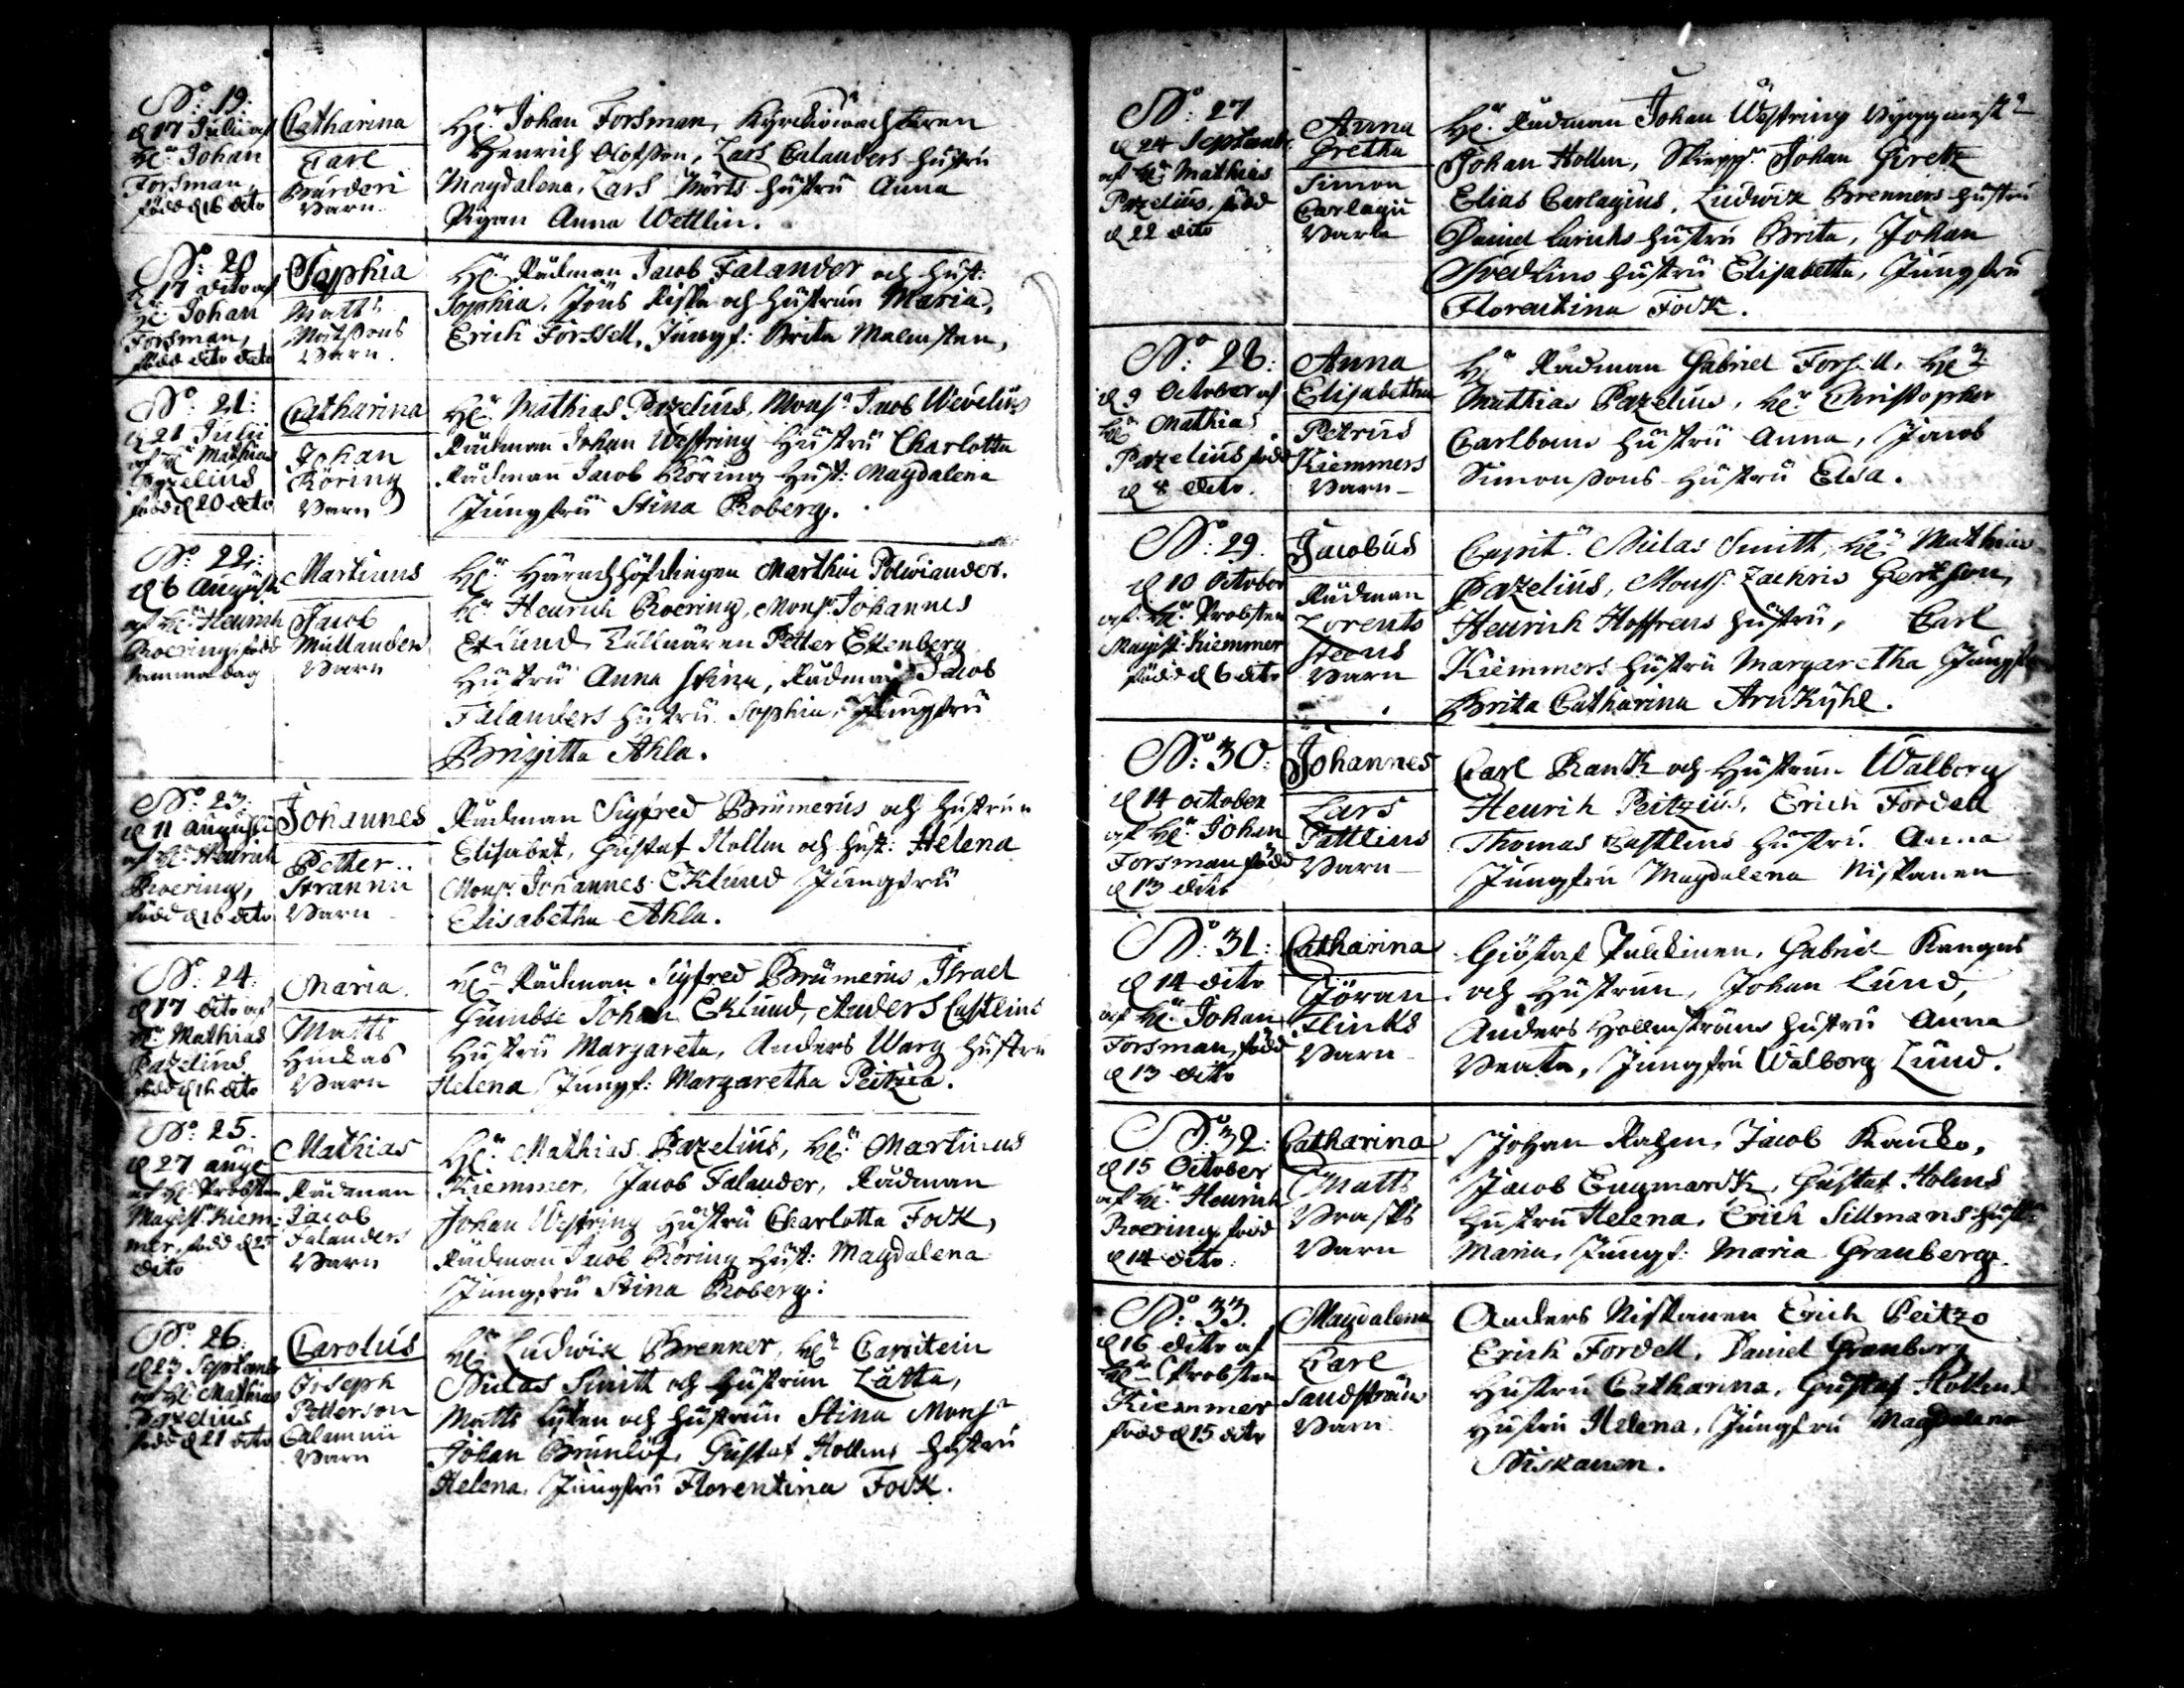 No: 19:
d 17 Julii af
Hr: Johan
Forsman,
född d 16 dito
Catharina
Carl
Burderi
Barn.
Hr: Johan Forsman, Kyrckiowachtaren
Henrich Olofsson, Lars Calanders Hustru
Magdalena, Lars Mörts Hustru Anna
Pigan Anna Wettlin.
No: 20
d 17 dito af
Hr: Johan
Forsman,
född dito dato
Sophia
Matts
Matssons
Barn.
Hr: Rådman Jacob Falander och Hust:
Sophia, Jöns och Hustrun Maria,
Erich Forssell, Jungf: Brita Malmsten,
No: 21:
d 21 Julii
af Hr Mathias
Pazelius
född d 20 dito
Catharina
Johan
Röring
Barn
Hr: Mathias Pazelius, Monsr Jacob Wevelius
Rådman Johan Westring Hustru Charlotta
Rådman Jacob Röring Hust: Magdalena
Jungfru Stina Roberg.
No: 22:
d 6 Augusti
af Hr: Henrich
Roering, född
samma dag
Martinus
Jacob
Mullanders
Barn
Hr: Häradshöfdingen Marthin Polviander.
Hr Henrich Roering, Monsr Johannes
Eklund Tullnären Petter Ekenberg
Hustru Anna Stina, Rådman Jacob
Falanders Hustru Sophia, Jungfru
Brigitta Ahla.
No: 23:
d 11 Augusti
af Hr Henrich
Roering,
född d 10 dito
Johannes
Petter
Strannu
Barn
Rådman Sigfred Brumerus och Hustrun
Elisabet, Gustaf Hollm och Hust: Helena
Monsr. Johannes Eklund Jungfru
Elisabetha Ahla.
No: 24:
d 17 dito af
Hr Mathias
Pazelius
född d 16 dito
Maria.
Matts
Huckas
Barn
Hr Rådman Sigfred Brumerus, Israel
Gumbse Johan Eklund, Anders Castlins
Hustru Margareta, Anders Warg Hustru
Helena, Jungf: Margaretha Peitzia.
No: 25.
d 27 aug
af Hr Probsten
Magist: Kiem-
mer, född d 25
dito
Mathias
Rådman
Jacob
Falanders
Barn
Hr: Mathias Pazelius, Hr: Martinus
Kiemmer, Jacob Falander, Rådman
Johan Westring Hustru Charlotta Fock,
Rådman Jacob Röring Hust: Magdalena
Jungfru Stina Roberg:
No: 26.
d 23 Septemb
af Hr Mathias
Pazelius
född d 21 dito
Carolus
Joseph
Petterson
Calamnii
Barn
Hr: Ludwik Brenner, Hr Capitein
Niclas Smitt och Hustrun Lätta,
Matts Lyten och Hustrun Stina Monsr
Johan Brunlöf, Gustaf Hollms Hustru
Helena, Jungfru Florentina Fock.
No: 27
d 24 Septemb:
af Hr: Mathias
Pazelius, född
d 22 dito
Anna
Gretha
Simon
Carlagii
Barn
Hr: Rådman Johan Westring Byggmestr
Johan Hollm, Skiepp: Johan Giretz
Elias Carlagius, Ludwik Brenners Hustru
Daniel Hustru Brita, Johan
Svedlins Hustru Elisabetha, Jungfru
Florentina Fock.
No: 28:
d 9 October af
Hr Mathias
Pazelius född
d 8 dito.
Anna
Elisabetha
Petrus
Kiemmers
Barn
Hr Rådman Gabriel Forsell, Hr:
Mathias Pazelius, Hr Christopher
Carlboms Hustru Anna, Jacob
Simonssons Hustru Elsa.
No: 29.
d 10 October
af Hr Probsten
Magist: Kiemmer
född d 6 dito
Jacobus
Rådman
Lorents
Steens
Barn
Capit: Niclas Smitt, Hr Mathias
Pazelius, Monsr. Zachris Gertzon,
Henrich Hoffrens Hustru, Carl
Kiemmers Hustru Margaretha Jungfr
Brita Catharina Arnkyhl.
No: 30:
d 14 october
af Hr Johan
Forsman född
d 13 dito
Johannes
Lars
Pattlins
Barn
Carl Ranck och Hustrun Walborg
Henrich Peitzius, Erich Fordell
Thomas Castlins Hustru Anna
Jungfru Magdalena Niskanen
No: 31:
d 14 dito
af Hr Johan
Forsman, född
d 13 dito
Catharina
Jöran
Flinks
Barn
Giöstaf Pulkinen, Gabriel Kangas
och Hustrun, Johan Lund,
Anders Hollmströms Hustru Anna
Beata, Jungfru Walborg Lund.
No: 32:
d 15 October
af Hr Henrich
Roering, född
d 14 dito:
Catharina
Matts
Brasks
Barn
Johan Rahm, Jacob Kauko,
Jacob Engmarck, Gustaf Holms
Hustru Helena, Erich Sillmans Hust:
Maria, Jungf: Maria Granberg
No: 33.
d 16 dito af
Hr Probsten
Kiemmer
född d 15 dito
Magdalena
Carl
Sandströms
Barn
Anders Niskanen Erich Peitzo
Erich Fordell, Daniel Granberg
Hustru Catharina, Gustaf Hollms
Hustru Helena, Jungfru Magdalena
Niskanen.